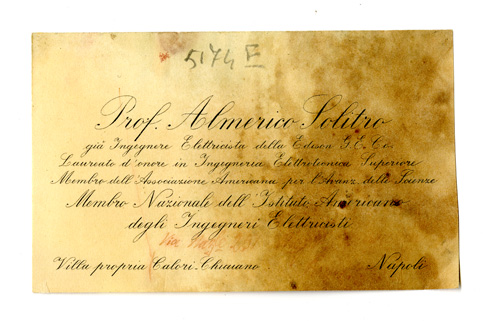 5174 E
Prof. Almerico Solitro
già Ingegnere Elettricista della Edison G. E. Co.
Laureato d'onore in Ingegneria Elettrotecnica Superiore
Membro dell'Associazione Americana per l'Avanz. delle Scienze
Membro Nazionale dell'Istituto Americano
degli Ingegneri Elettricisti
Via
Villa propria Calori-Chiaiano Napoli